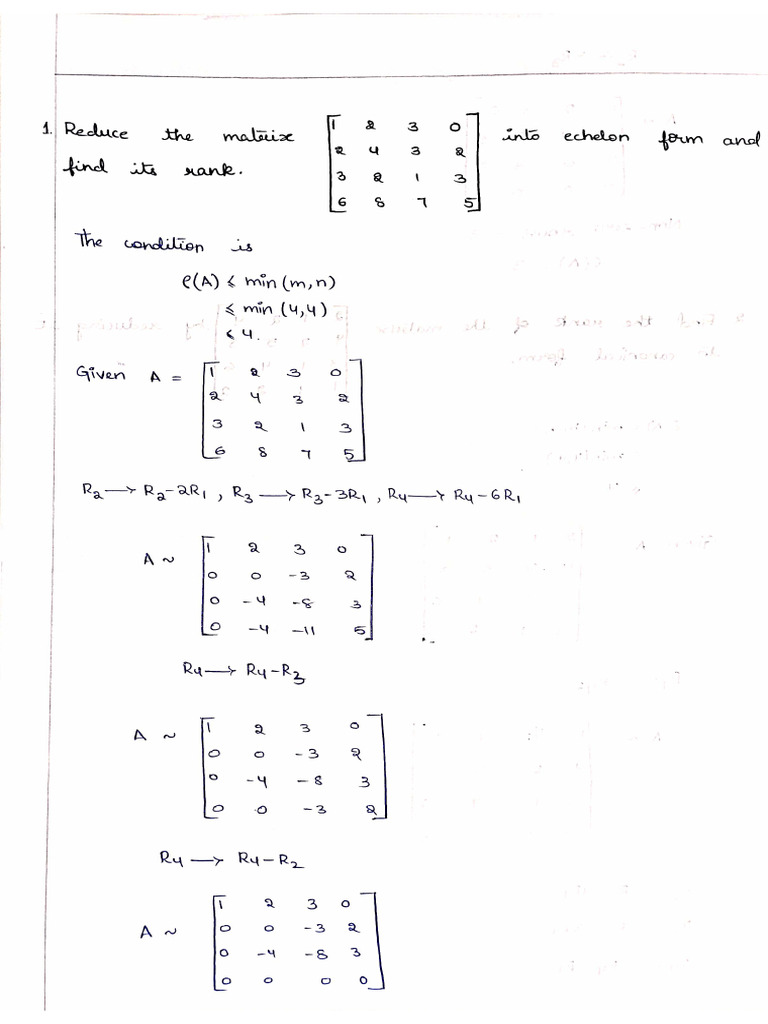 1. Reduce the matrix [1 2 3 0 into echelon form and
2 4 3 2
find its rank. 3 2 1 3
6 8 7 5]
The condition is
ρ(A) ≤ min (m,n)
≤ min (4,4)
≤ 4.
Given A = [1 2 3 0
2 4 3 2
3 2 1 3
6 8 7 5]
R2 → R2-2R1 , R3 → R3-3R1 , R4 → R4-6R1
A ~ [1 2 3 0
0 0 -3 2
0 -4 -8 3
0 -4 -11 5]
R4 → R4-R3
A ~ [1 2 3 0
0 0 -3 2
0 -4 -8 3
0 0 -3 2]
R4 → R4-R2
A ~ [1 2 3 0
0 0 -3 2
0 -4 -8 3
0 0 0 0]